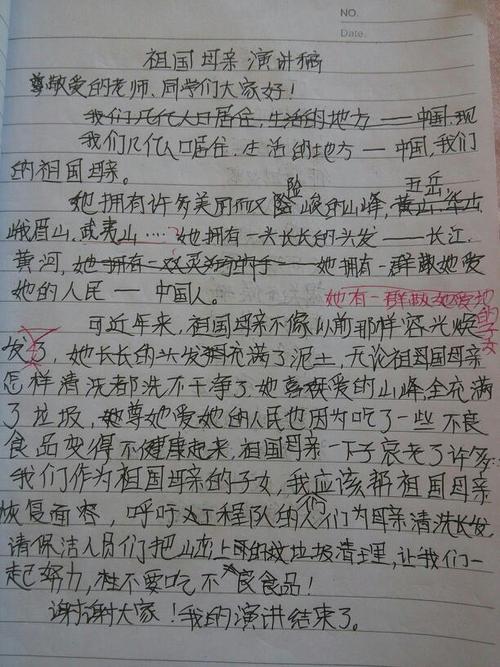 NO.
Date.
祖国母亲演讲稿
尊敬爱的老师、同学们大家好！
我们几代人口居住,生活的地方——中国,现
我们几代人口居住.生活的地方——中国,我们
的祖国母亲。
险 五岳
她拥有许多美国而又峻的山峰,黄山、华山
峨眉山、武夷山……她拥有一头长长的头发——长江、
黄河,她拥有一双灵活的手——她拥有一群敬她爱
她的人民——中国人。
她有一群敬她爱她的子女
可近年来,祖国母亲不像以前那样容光焕
发了,她长长的头发充满了泥土,无论祖国母亲
怎样清洗都洗不干净了.她喜爱的山峰,全充满
了垃圾,尊她爱她的人民也因为吃了一些不良
食品变得不健康起来,祖国母亲一下子衰老了许多:
我们作为祖国母亲的子女,我应该帮祖国母亲
们
恢复面容,呼吁工程队的人们为母亲清洗长发,
请保洁人员们把山上的垃圾清理,让我们一
起努力,不要吃不良食品!
谢谢大家!我的演讲结束了。